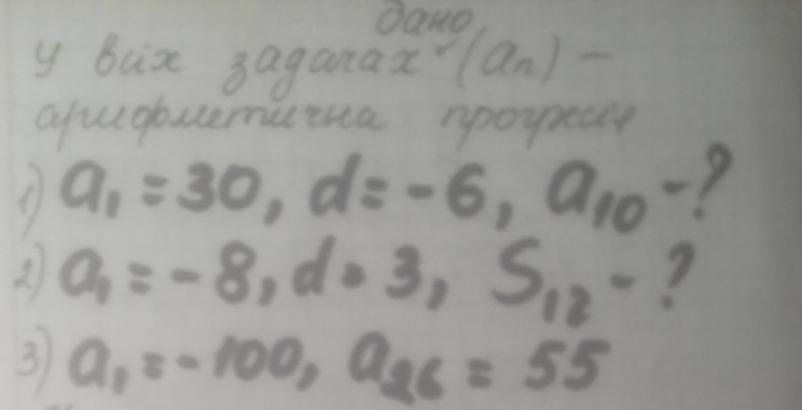 дано
У всіх задачах (an) -
арифметична прогресія
1) a₁ = 30, d = -6, a₁₀ - ?
2) a₁ = - 8, d = 3, S₁₂ - ?
3) a₁ = - 100, a₂₆ = 55